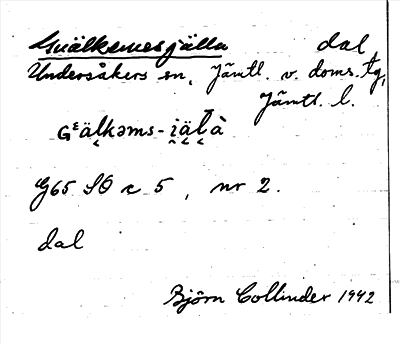 Gnälkemesjälla dal
Undersåkers sn, Jämtl. v. doms. tg,
Jämtl. l.
Gᵋäl̨kəms-i̯äl̨à
G65 SO c 5, nr 2.
dal
Björn Collinder 1942